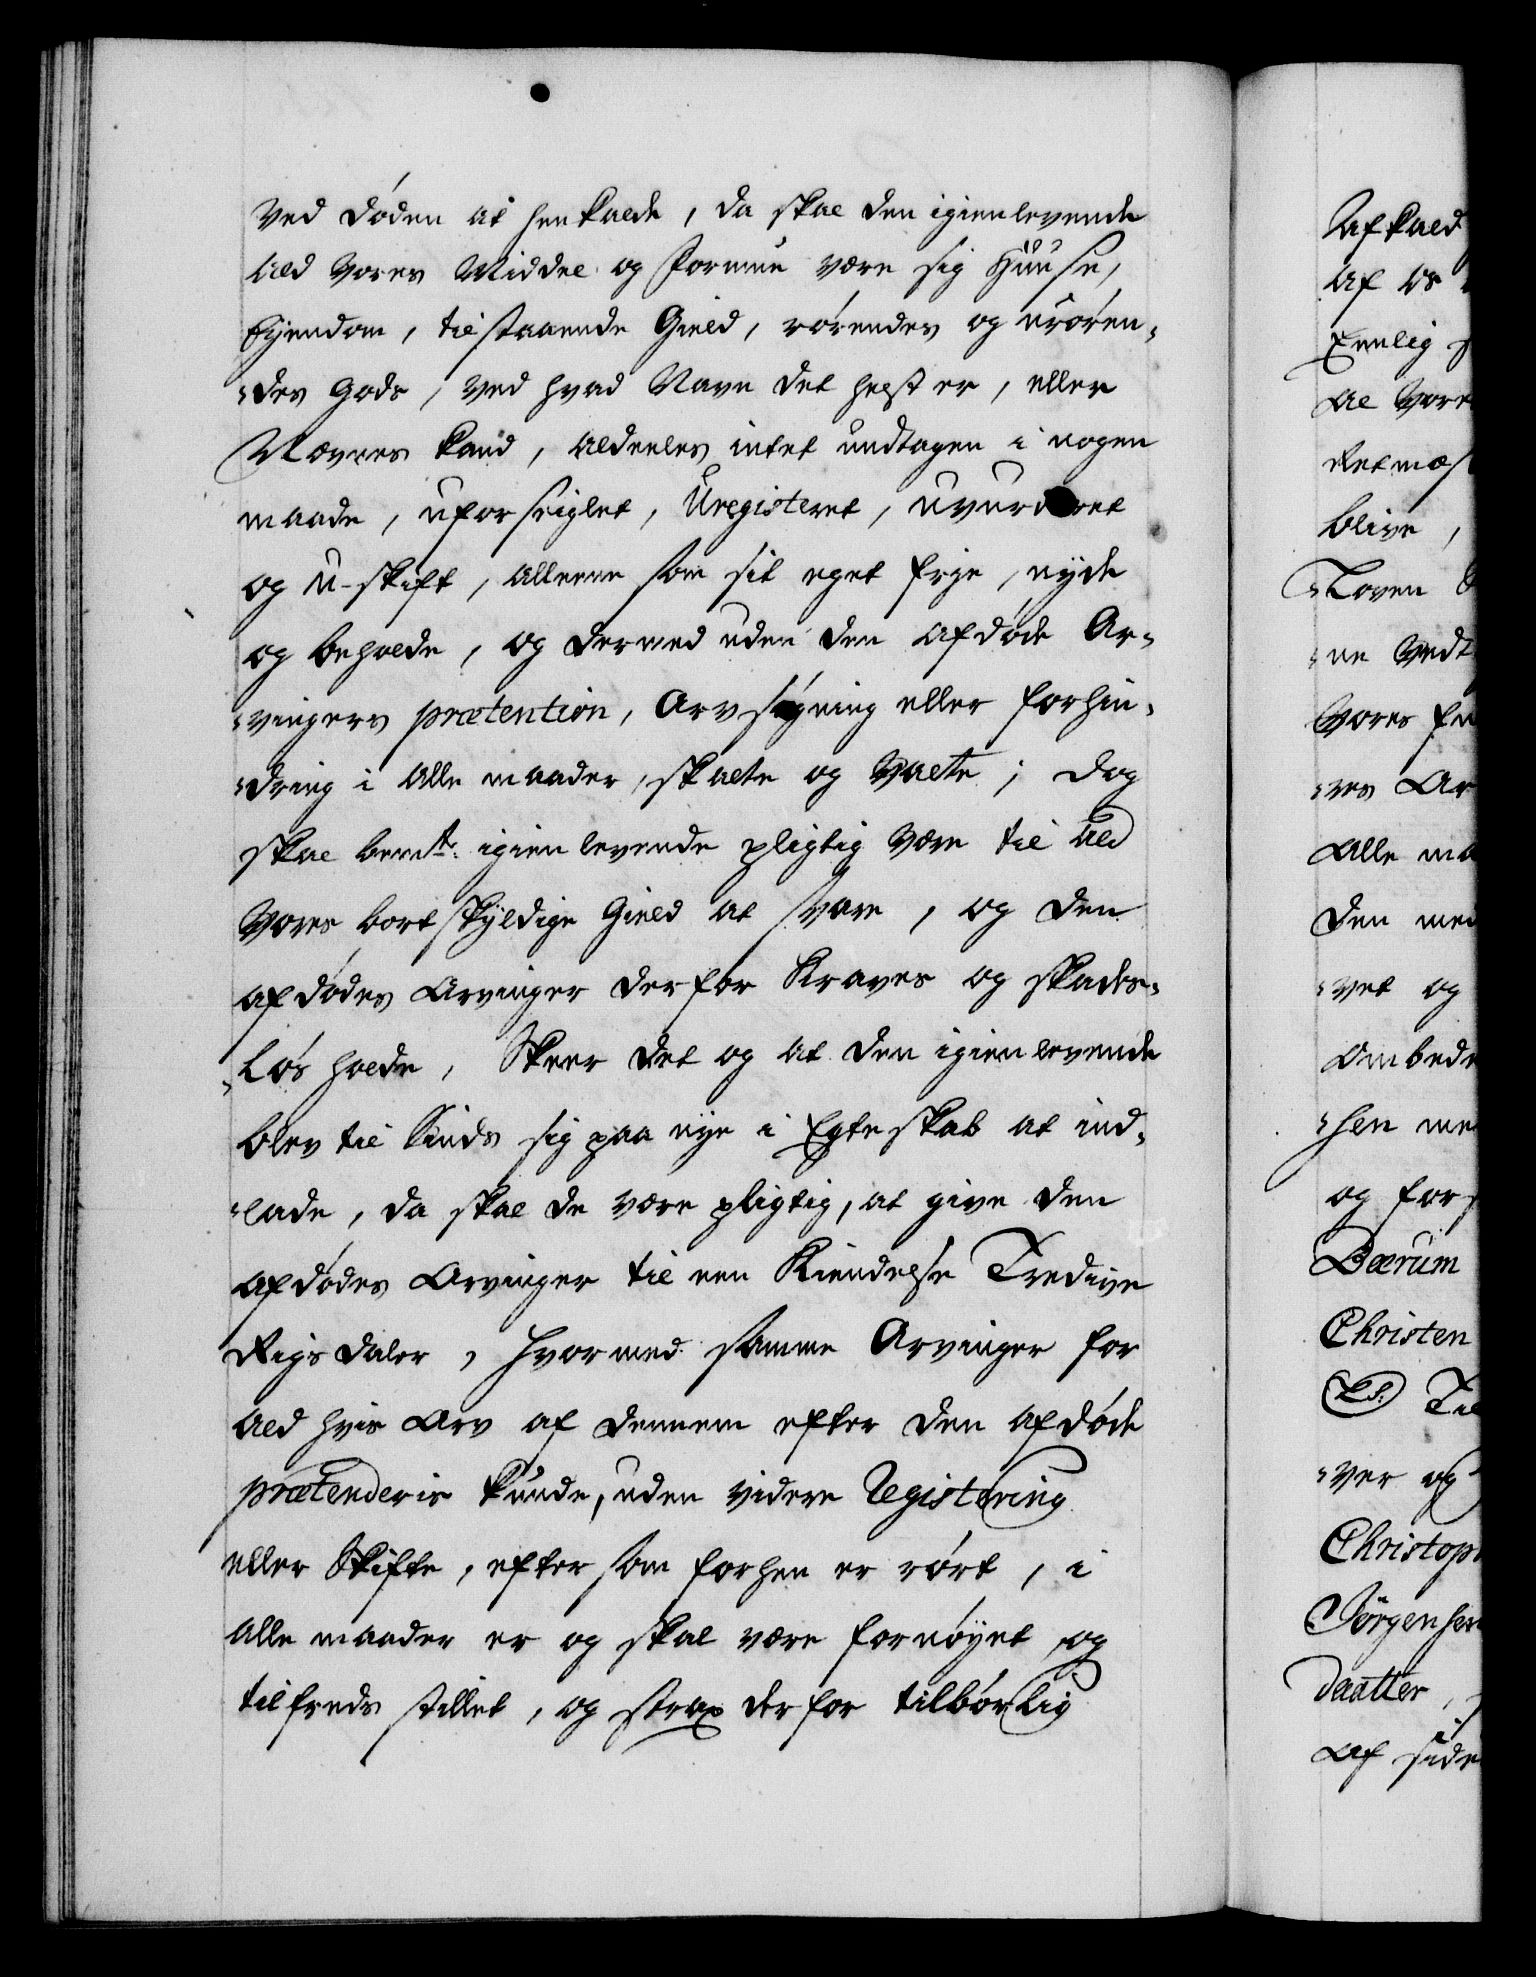 ved døden at henkalde, da skal den igienlevende
ald vores Middel og Formue være sig Huuse,
Eyendom, tilstaaende Gield, rørendes og urøren-
-des Gods, ved hvad Navn det helst er, eller
Nævnes kand, aldeeles intet undtagen i nogen
maade, uforseiglet, Uregisteret, uvurderet
og U-skift, alleene som sit eget frie, nyde
og beholde, og dermed uden den afdøde Ar-
-vingers prætention, Arvsøgning eller forhin-
-dring i alle maader, skalte og valte; dog
skal bemte. igienlevende pligtig være til ald
vores bortskyldige Gield at svare, og den
afdødes Arvinger derfor Kraves og skades-
-løs holde, Skeer det og at den igienlevende
blev til Sinds sig paa nye i Egteskab at ind-
-lade, da skal de være pligtig, at give den
afdødes Arvinger til een Kiendelse Tredive
Rigsdaler, hvormed samme Arvinger for
ald hvis Arv af dennem efter den afdøde
prætenderis kunde, uden videre Registering
eller Skifte, efter som forhen er rørt, i
alle maader er og skal være fornøyet og
tilfreds stillet, og strax derfor tilbørlig
Afkald
af os
Eenlig
al vore
Retmæs
blive,
-Loven
-ne vedt
vores
-res Ar
alle ma
den med
-vet og
ombede
-sen me
og fors
Bærum
Christen
LS. Til
-ver og
Christop
Jørgensen
daatter,
af side